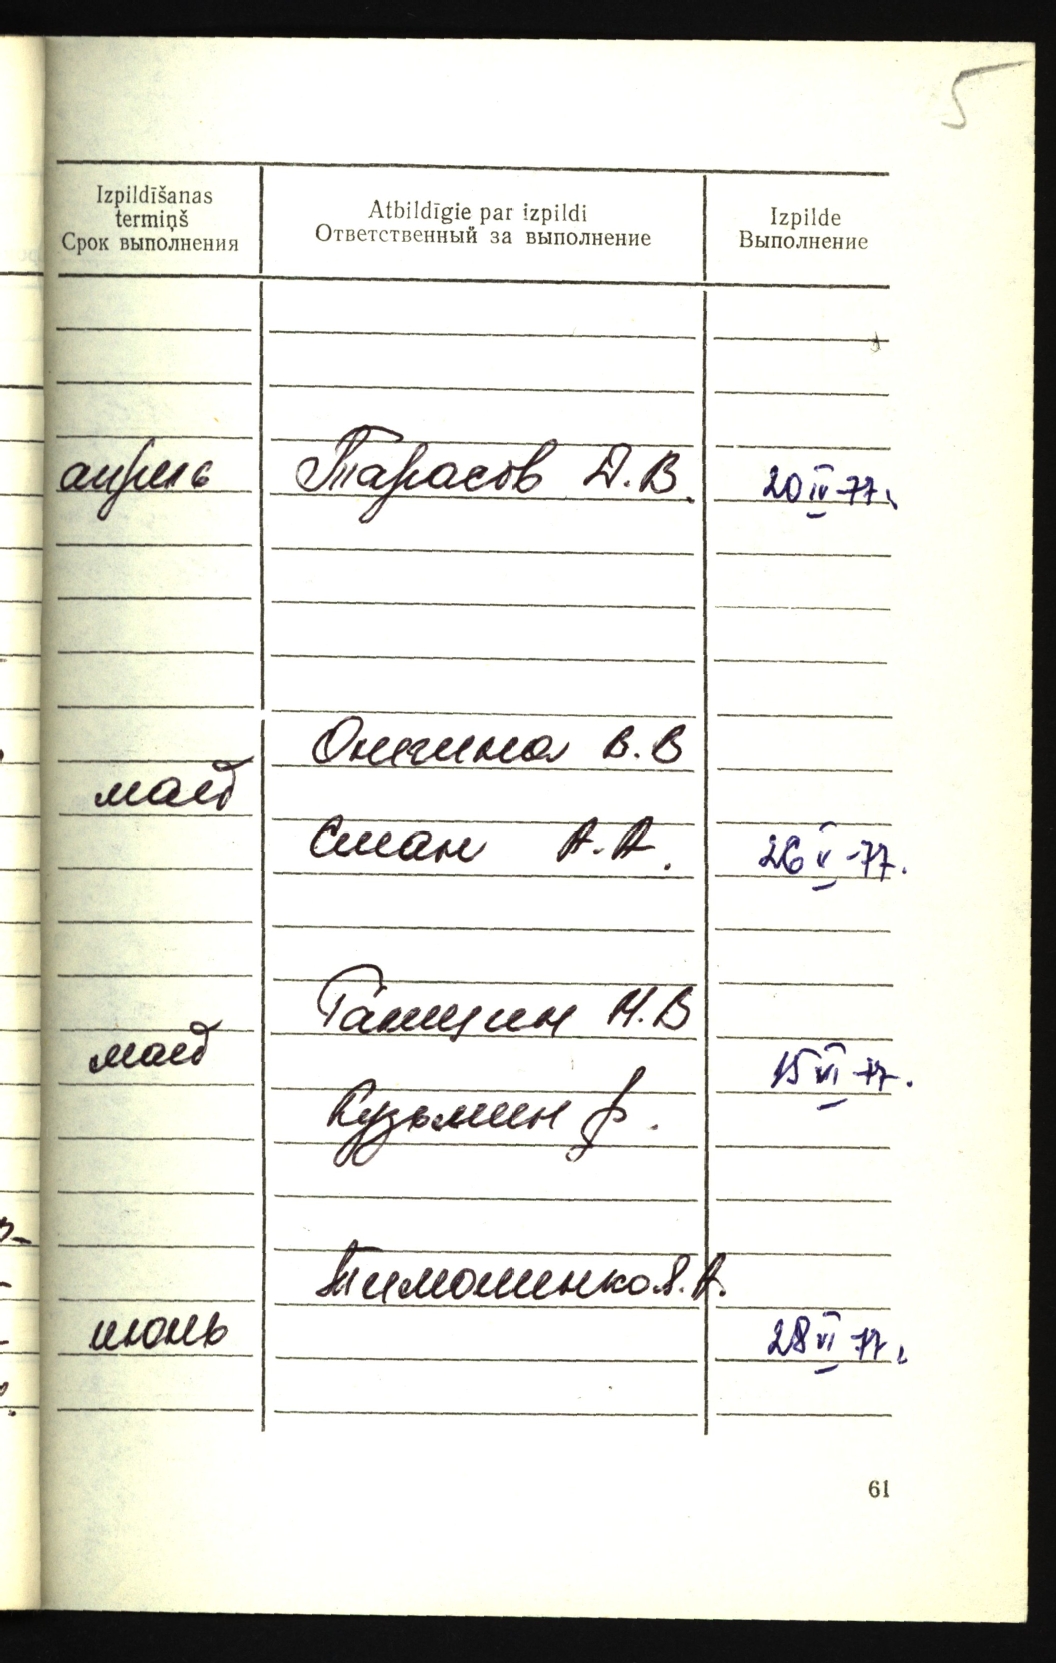 5
Izpildīšanas
termiņš
Срок выполнения
Atbildīgie par izpildi
Ответственный за выполнение
Izpilde
Выполнение
апрель Тарасов Д.В. 20 IV-77.
Онегина В.В
май
Сман А.А. 26 V-77.
Ганщин Н.В
май 15 VI-77.
Кузьмин
Тимошенко А.
июнь 28 VI-77.
61